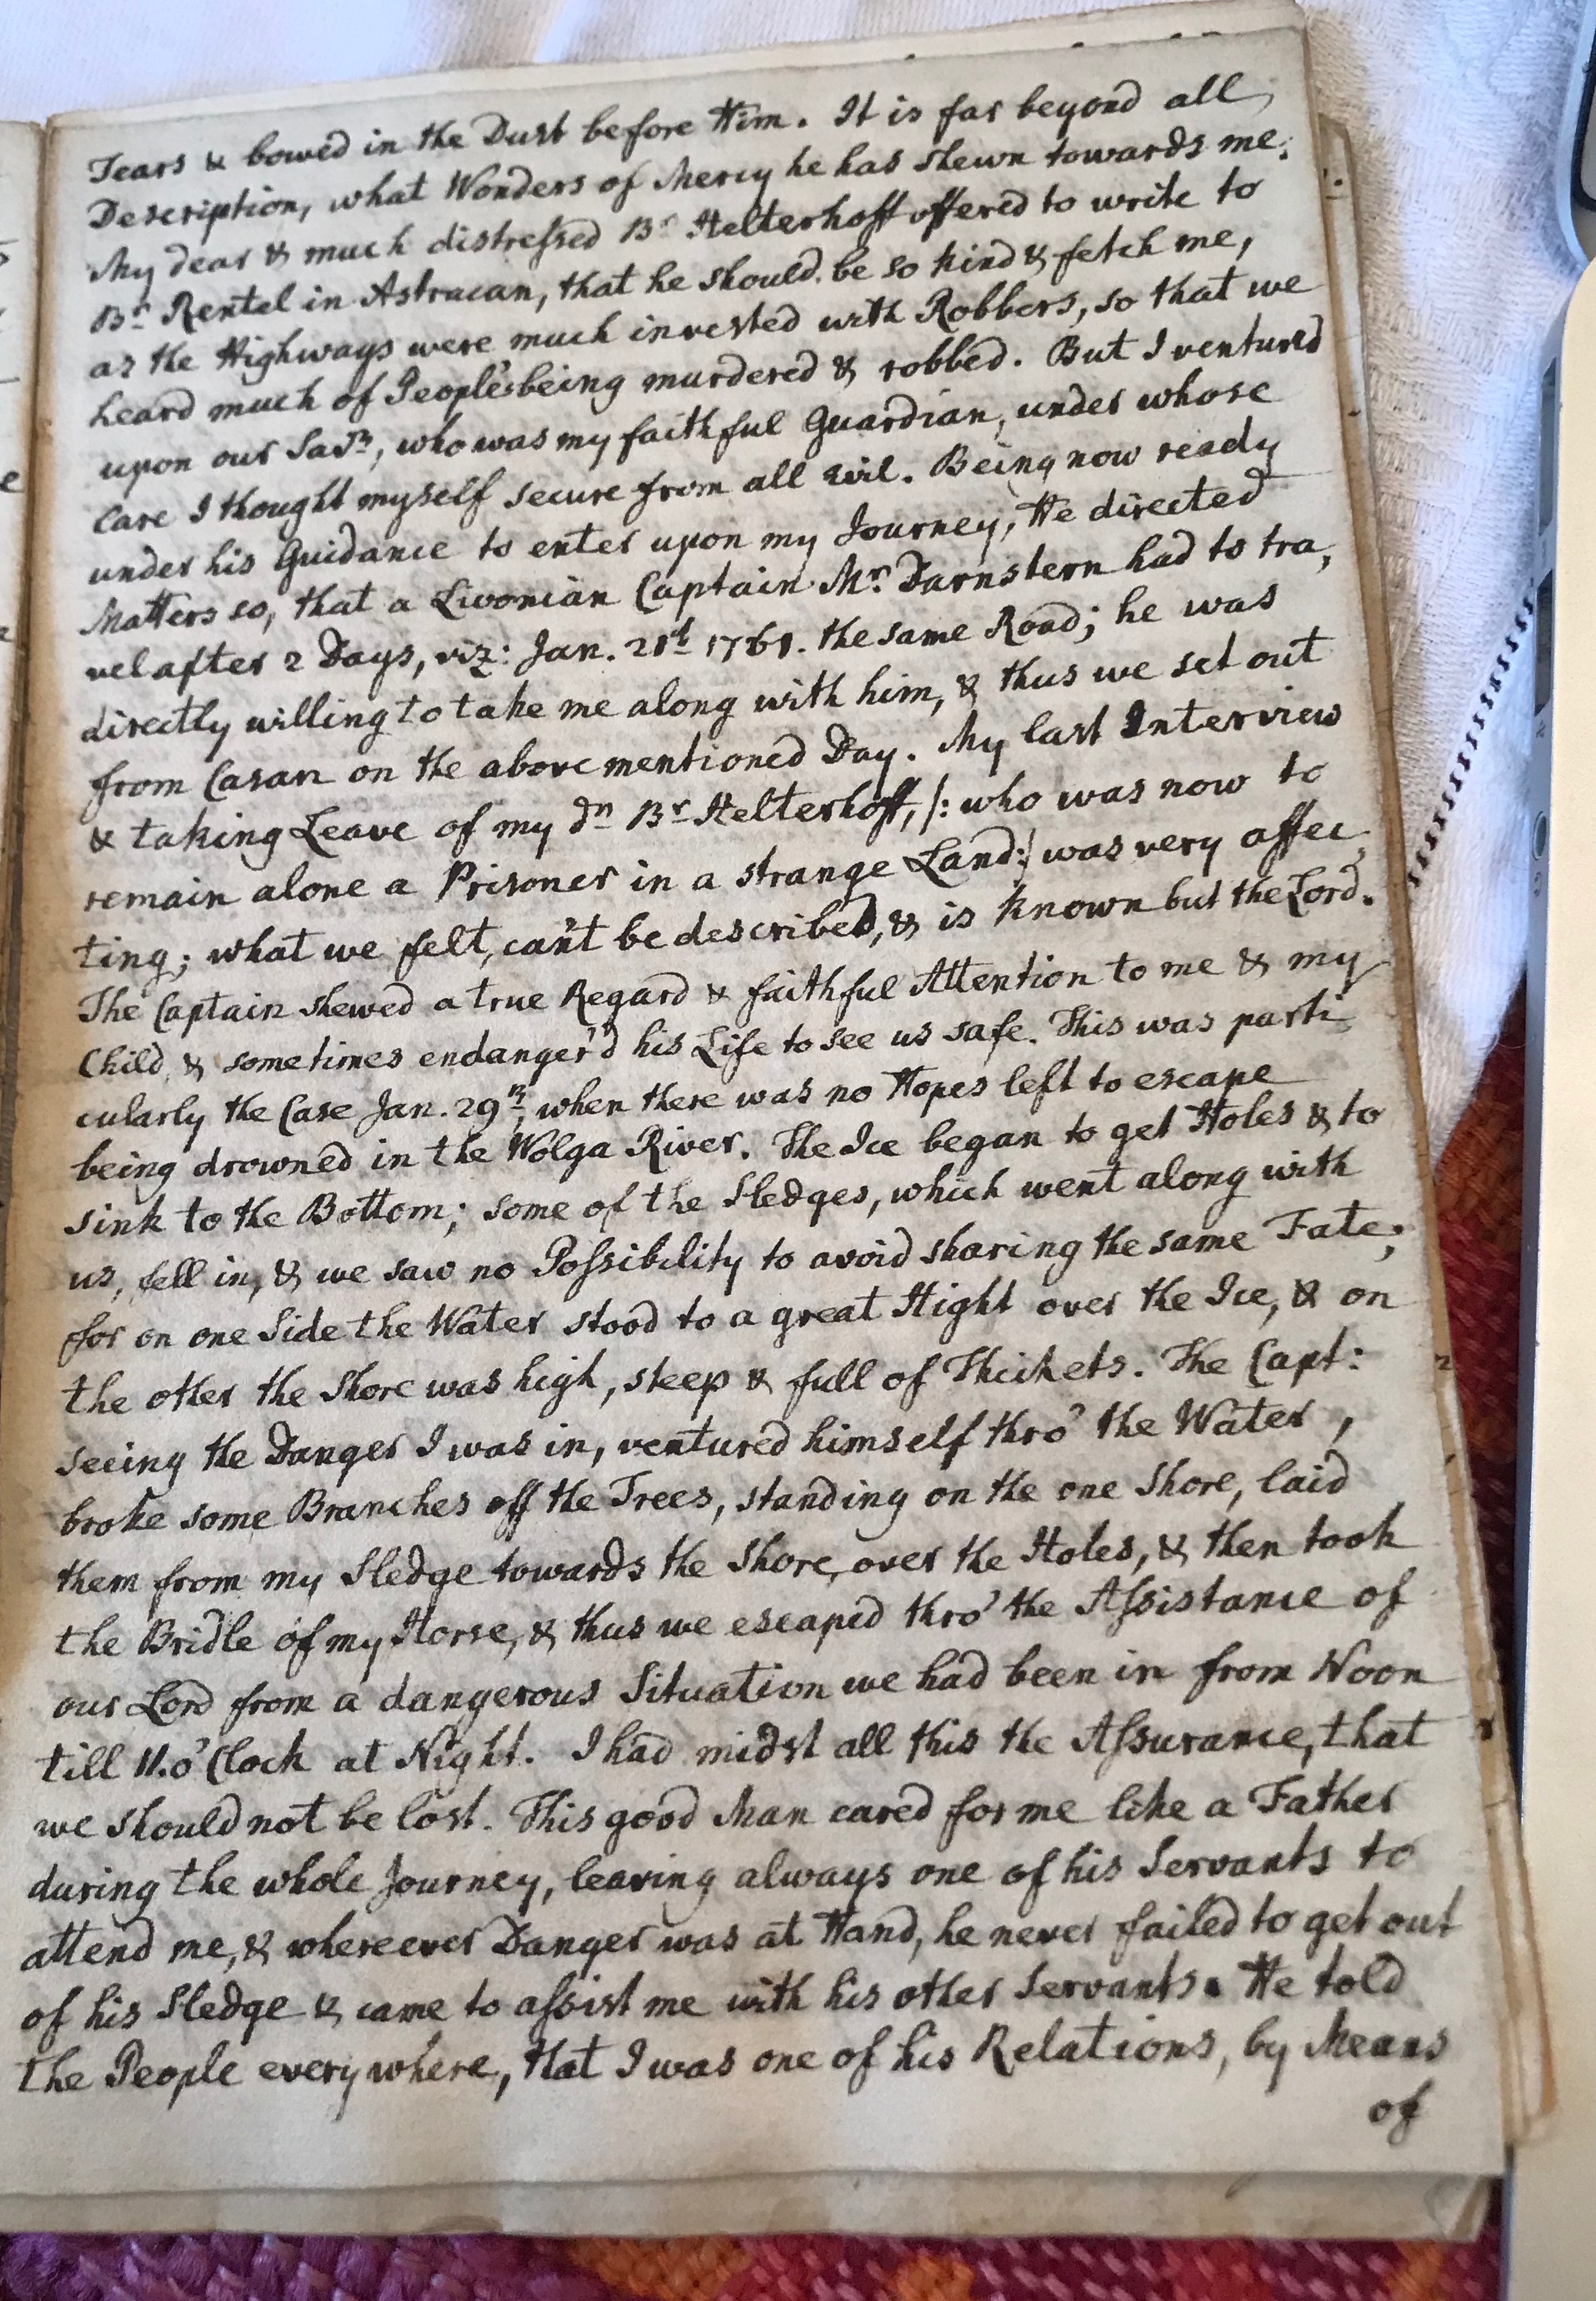 Tears & bowed in the Dust before Him. It is far beyond all
Description, what Wonders of Mercy he has shewn towards me.
My dear & much distressed Br Helterhoff offered to write to
Br Rentel in Astracan, that he should be so kind & fetch me,
as the Highways were much invested with Robbers, so that we
heard much of People's being murdered & robbed. But I ventured
upon our Savr, who was my faithful Guardian, under whose
Care I thought myself secure from all evil. Being now ready
under his Guidance to enter upon my Journey, He directed
Matters so, that a Livonian Captain Mr. Darnstern had to tra,
vel after 2 Days, viz: Jan. 21st 1761. the same Road; he was
directly willing to take me along with him, & thus we set out
from Casan on the abovementioned Day. My last Interview
& taking Leave of my dn Br Helterhoff, /: who was now to
remain alone a Prisoner in a strange Land:/ was very affec,
ting; what we felt, can't be described, & is known but the Lord.
The Captain shewed a true Regard & faithful Attention to me & my
Child, & sometimes endanger'd his Life to see us safe. This was parti
cularly the Case Jan. 29th, when there was no Hopes left to escape
being drowned in the Wolga River. The Ice began to get Holes & to
sink to the Bottom; some of the Sledges, which went along with
us, fell in, & we saw no Possibility to avoid sharing the same Fate;
for on one Side the Water stood to a great Hight over the Ice, & on
the other the Shore was high, steep & full of Thickets. The Capt:
seeing the Danger I was in, ventured himself thro' the Water,
broke some Branches off the Trees, standing on the one Shore, laid
them from my Sledge towards the Shore, over the Holes, & then took
the Bridle of my Horse, & thus we escaped thro' the Assistance of
our Lord from a dangerous Situation we had been in from Noon
till 11.o'Clock at Night. I had midst all this the Assurance, that
we should not be lost. This good Man cared for me like a Father
during the whole Journey, leaving always one of his Servants to
attend me, & whereever Danger was at Hand, he never failed to get out
of his Sledge & came to assist me with his other Servants. He told
the People everywhere, that I was one of his Relations, by Means
of